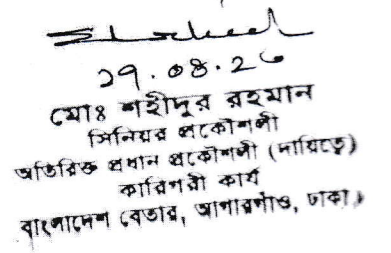 ২৭.০৪.২৬
মোঃ শহীদুর রহমান
সিনিয়র প্রকৌশলী
অতিরিক্ত প্রধান প্রকৌশলী (দায়িত্বে)
কারিগরী কার্য
বাংলাদেশ বেতার, আগারগাঁও, ঢাকা।